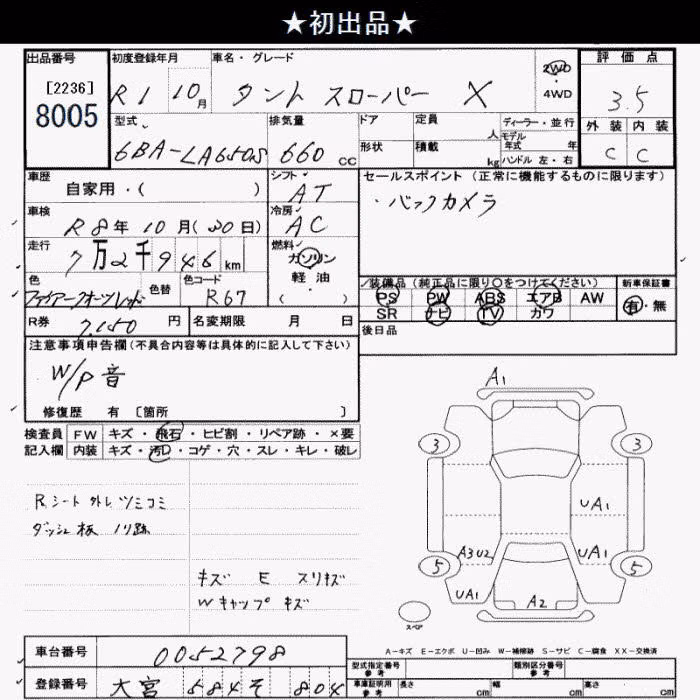 ★初出品★
出品番号
[2236]
8005
初度登録年月
R1 10月
車名・グレード
タント スローパー X
2WD
・
4WD
評価点
3.5
外装 内装
C C
型式
6BA-LA650S
排気量
660 cc
ドア
形状
定員
人
積載
kg
ディーラー・並行
モデル
年式 年
ハンドル 左・右
車歴
自家用・( )
シフト
AT
車検
R8年10月(20日)
冷房
AC
走行
7万2千946km
燃料
ガソリン
軽油
( )
色
色替
色コード
R67
R券
7,150円
名変期限 月 日
セールスポイント(正常に機能するものに限ります)
・バックカメラ
装備品(純正品に限り〇をつけてください)
PS PW ABS エアB AW
SR ナビ TV カワ
新車保証書
有・無
後日品
注意事項申告欄(不具合内容等は具体的に記入して下さい)
W/P音
修復歴 有 〔箇所 〕
検査員 FW キズ・飛石・ヒビ割・リペア跡・×要
記入欄 内装 キズ・汚レ・コゲ・穴・スレ・キレ・破レ
Rシート外レツミコミ
ダッシュ板 ノリ跡
キズ E スリキズ
Wキャップキズ
A1
3 3
UA1
A3U2 UA1
5 5
UA1 A2
スペア
A-キズ E-エクボ U-凹み W-補修跡 S-サビ C-腐食 XX-交換済
車台番号
0052798
登録番号
大宮 584 そ 804
型式指定番号
参考
類別区分番号
参考
車庫証明用
参考
長さ cm 幅 cm 高さ cm